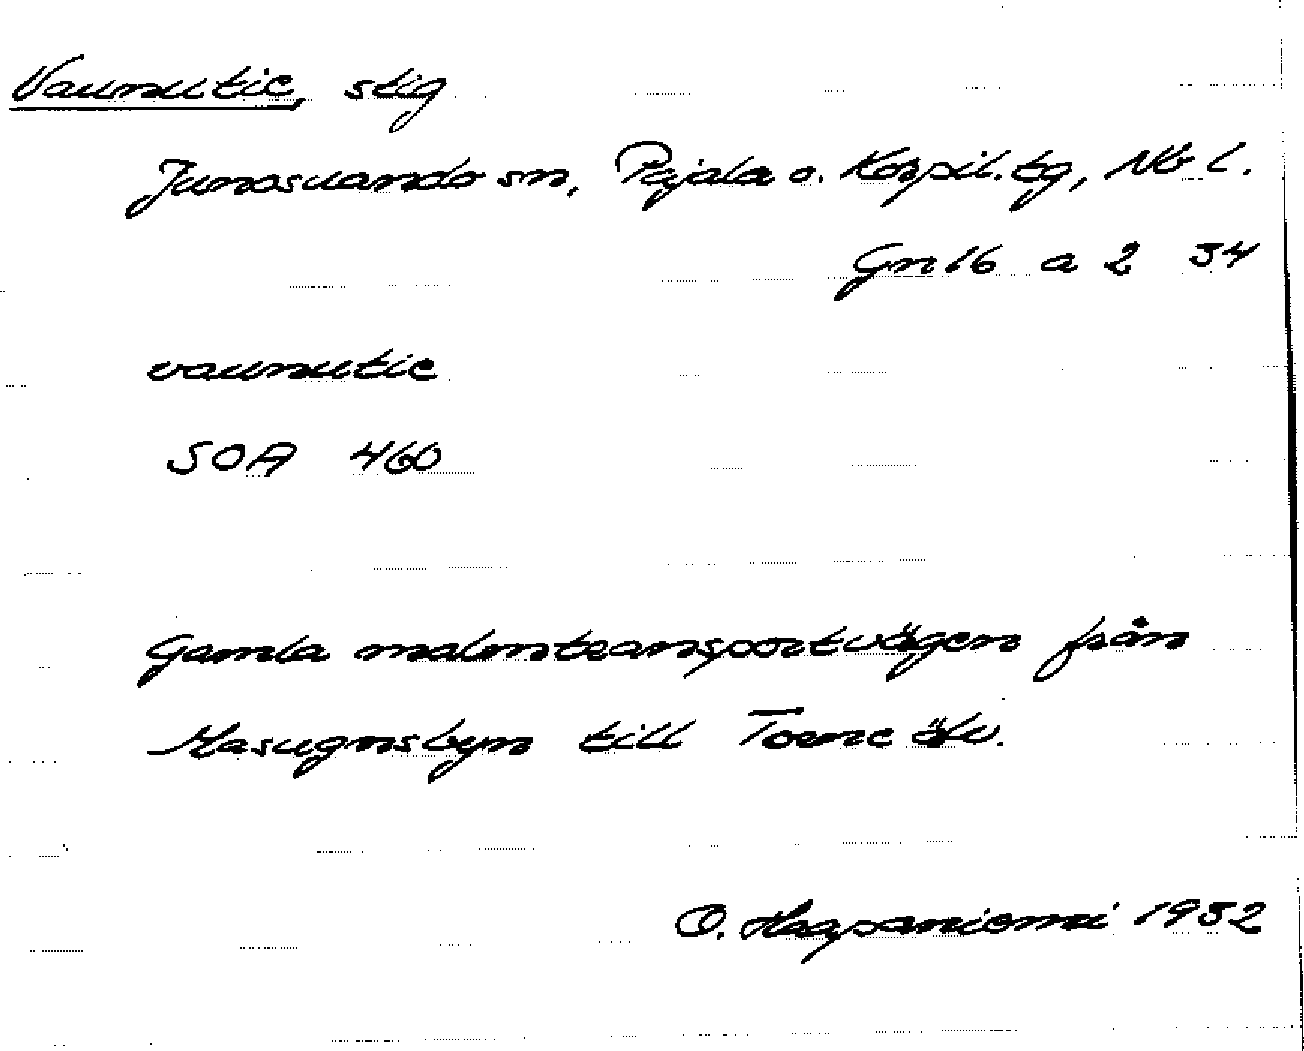 Vaunutie, stig
Junosuando sn, Pajala o. Korpil. tg, Nb l.
Gn 16 a 2 34
vaunutie
SOA 460
Gamla malmtransportvägen från
Masugnsbyn till Torne älv.
O. Haapaniemi 1932